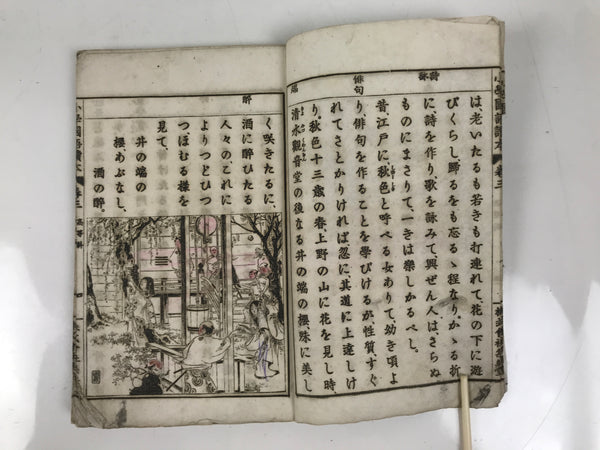 は、老いたるも若きも打連れて、花の下に遊
びくらし、歸るをも忘るゝ程なり。かゝる折
に詩を作り、歌を詠みて、興ぜん人は、さらぬ
ものにまさりて、一きは樂しかるべし。
昔江戸に秋色と呼べる女ありて、幼き頃よ
り、俳句を作ることを學びけるが性質、すぐ
れてさとかりければ、忽に、其道に上達しけ
り。秋色十三歳の春、上野の山に花を見し時、
清水觀音堂の後なる井の端の櫻、殊に美し
詩
詠
俳句
端
く咲きたるに、
酒に醉ひたる
人々の、これに
よりつどひつ
つほむる樣を
見て、
井の端の
櫻あぶなし、
酒の醉。
醉
小學國語讀本
卷三